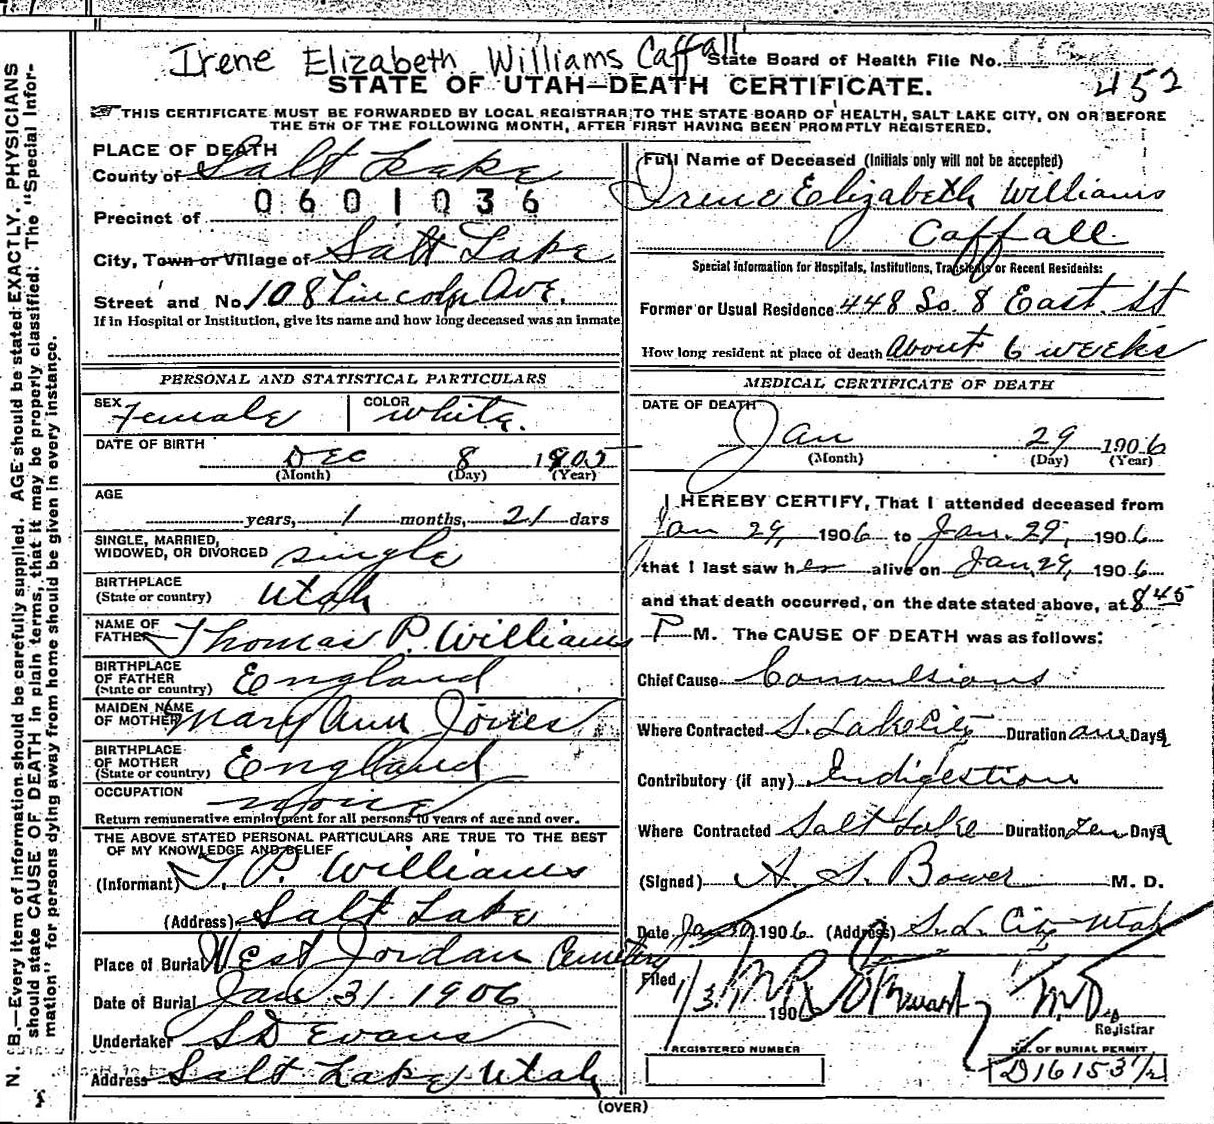 Irene Elizabeth Williams Caffall
State Board of Health File No.
452
STATE OF UTAH—DEATH CERTIFICATE.
THIS CERTIFICATE MUST BE FORWARDED BY LOCAL REGISTRAR TO THE STATE BOARD OF HEALTH, SALT LAKE CITY, ON OR BEFORE
THE 5TH OF THE FOLLOWING MONTH, AFTER FIRST HAVING BEEN PROMPTLY REGISTERED.
N. B.—Every item of information should be carefully supplied. AGE should be stated EXACTLY. PHYSICIANS
should state CAUSE OF DEATH in plain terms, that it may be properly classified. The "Special Infor-
mation" for persons dying away from home should be given in every instance.
PLACE OF DEATH
County of Salt Lake
0601036
Precinct of
City, Town or Village of Salt Lake
Street and No. 108 Lincoln Ave.
If in Hospital or Institution, give its name and how long deceased was an inmate
PERSONAL AND STATISTICAL PARTICULARS
SEX Female COLOR white.
DATE OF BIRTH
Dec 8 1905
(Month) (Day) (Year)
AGE
years, 1 months, 21 days
SINGLE, MARRIED,
WIDOWED, OR DIVORCED single
BIRTHPLACE
(State or country) Utah
NAME OF
FATHER Thomas P. Williams
BIRTHPLACE
OF FATHER
(State or country) England
MAIDEN NAME
OF MOTHER Mary Ann Jones
BIRTHPLACE
OF MOTHER
(State or country) England
OCCUPATION none
Return remunerative employment for all persons 10 years of age and over.
THE ABOVE STATED PERSONAL PARTICULARS ARE TRUE TO THE BEST
OF MY KNOWLEDGE AND BELIEF
(Informant) T. P. Williams
(Address) Salt Lake
Place of Burial West Jordan Cemetery
Date of Burial Jan 31 1906
Undertaker S D Evans
Address Salt Lake Utah
Full Name of Deceased (Initials only will not be accepted)
Irene Elizabeth Williams
Caffall
Special Information for Hospitals, Institutions, Transients or Recent Residents:
Former or Usual Residence 448 So. 8 East. St
How long resident at place of death About 6 weeks
MEDICAL CERTIFICATE OF DEATH
DATE OF DEATH
Jan 29 1906
(Month) (Day) (Year)
I HEREBY CERTIFY, That I attended deceased from
Jan 29, 1906 to Jan. 29, 1906
that I last saw her alive on Jan. 29, 1906
and that death occurred, on the date stated above, at 8 45
P M. The CAUSE OF DEATH was as follows:
Chief Cause Convulsions
Where Contracted S. Lake City Duration one Days
Contributory (if any) Indigestion
Where Contracted Salt Lake Duration Ten Days
(Signed) A. S. Bower M. D.
Date Jan 30 1906 (Address) S. L. City Utah
Filed 1/31 1906 M R Stewart M.D.
Registrar
REGISTERED NUMBER
NO. OF BURIAL PERMIT
D16153 1/2
(OVER)